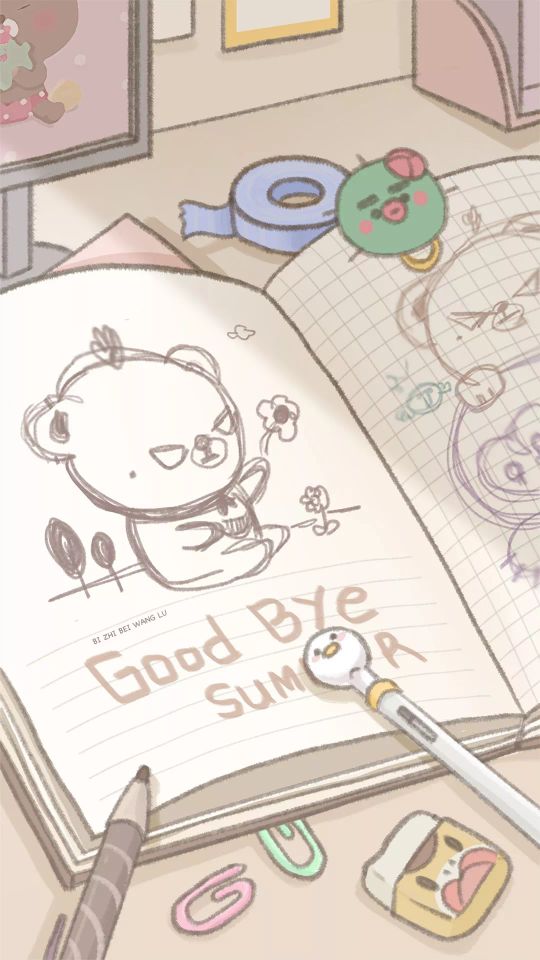 BI ZHI BEI WANG LU
Good Bye
SUM R